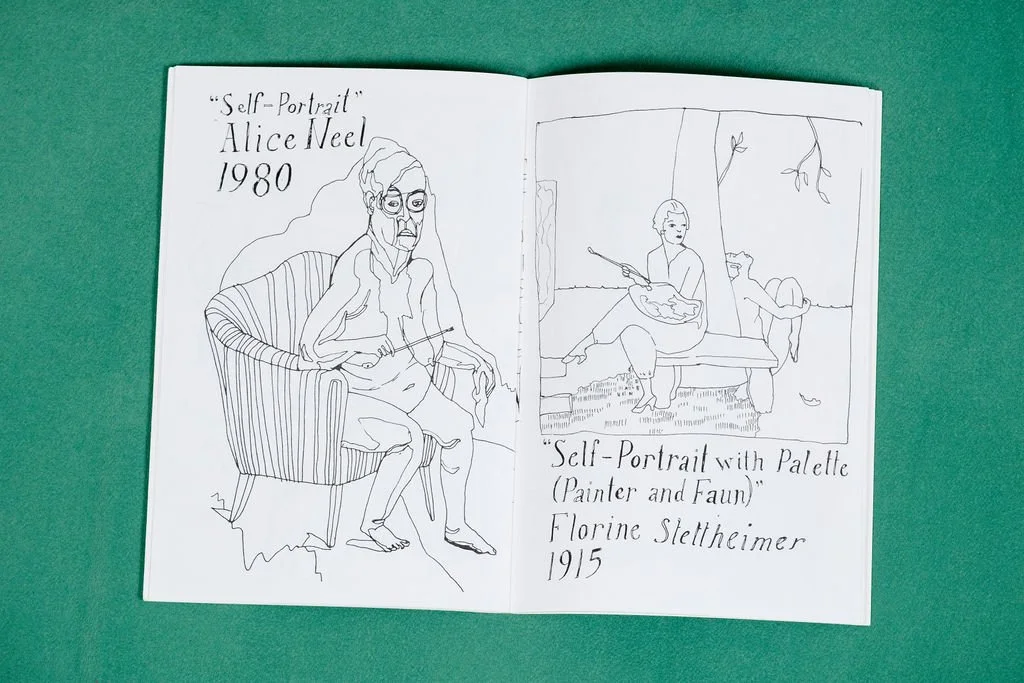 "Self-Portrait"
Alice Neel
1980
"Self-Portrait with Palette
(Painter and Faun)"
Florine Stettheimer
1915